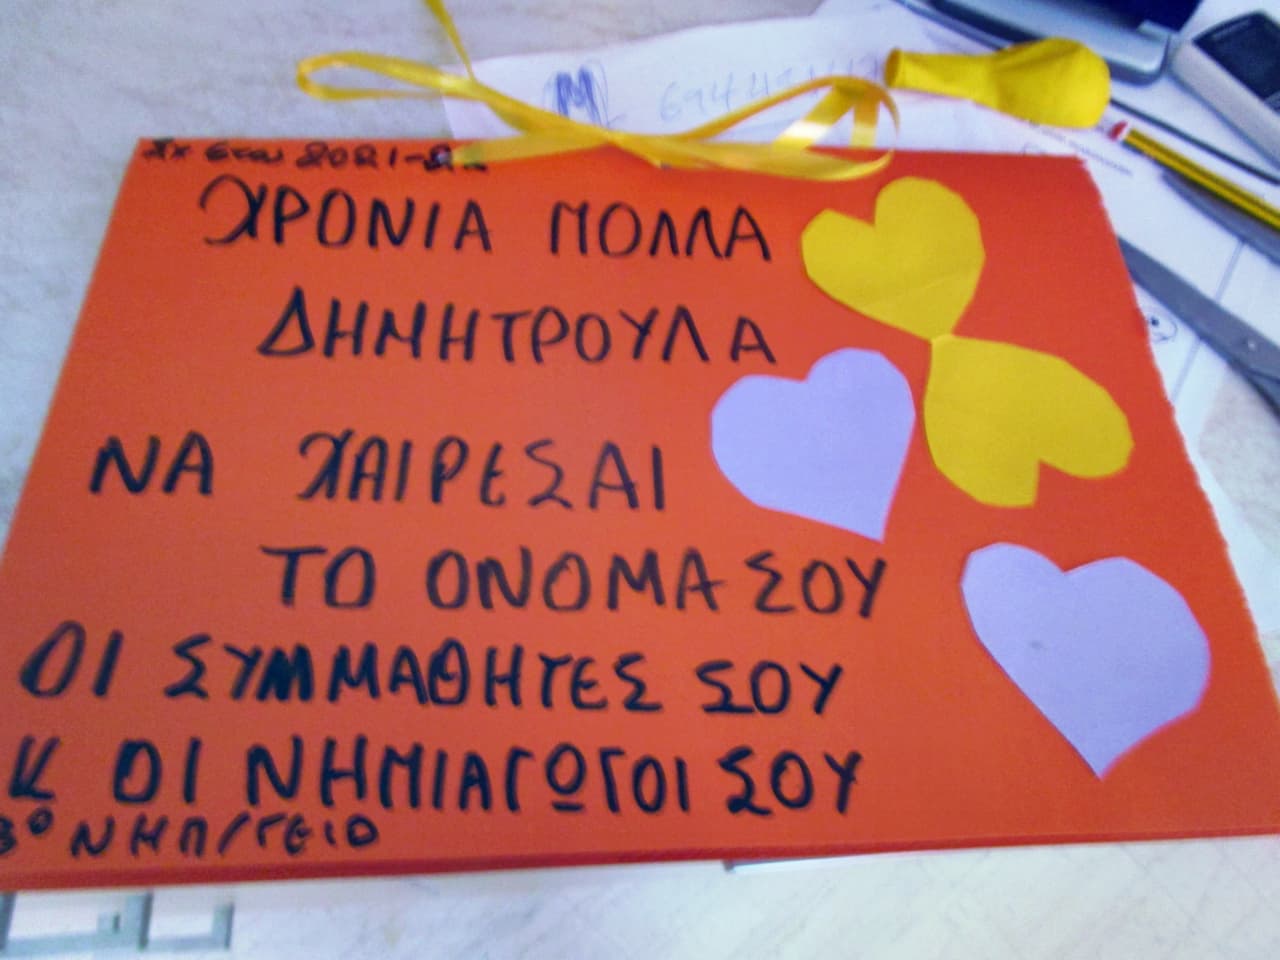 Σχ έτου 2021-22
ΧΡΟΝΙΑ ΠΟΛΛΑ
ΔΗΜΗΤΡΟΥΛΑ
ΝΑ ΧΑΙΡΕΣΑΙ
ΤΟ ΟΝΟΜΑ ΣΟΥ
ΟΙ ΣΥΜΜΑΘΗΤΕΣ ΣΟΥ
Κ ΟΙ ΝΗΜΙΑΓΩΓΟΙ ΣΟΥ
3º ΝΗΠ/ΓΕΙΟ